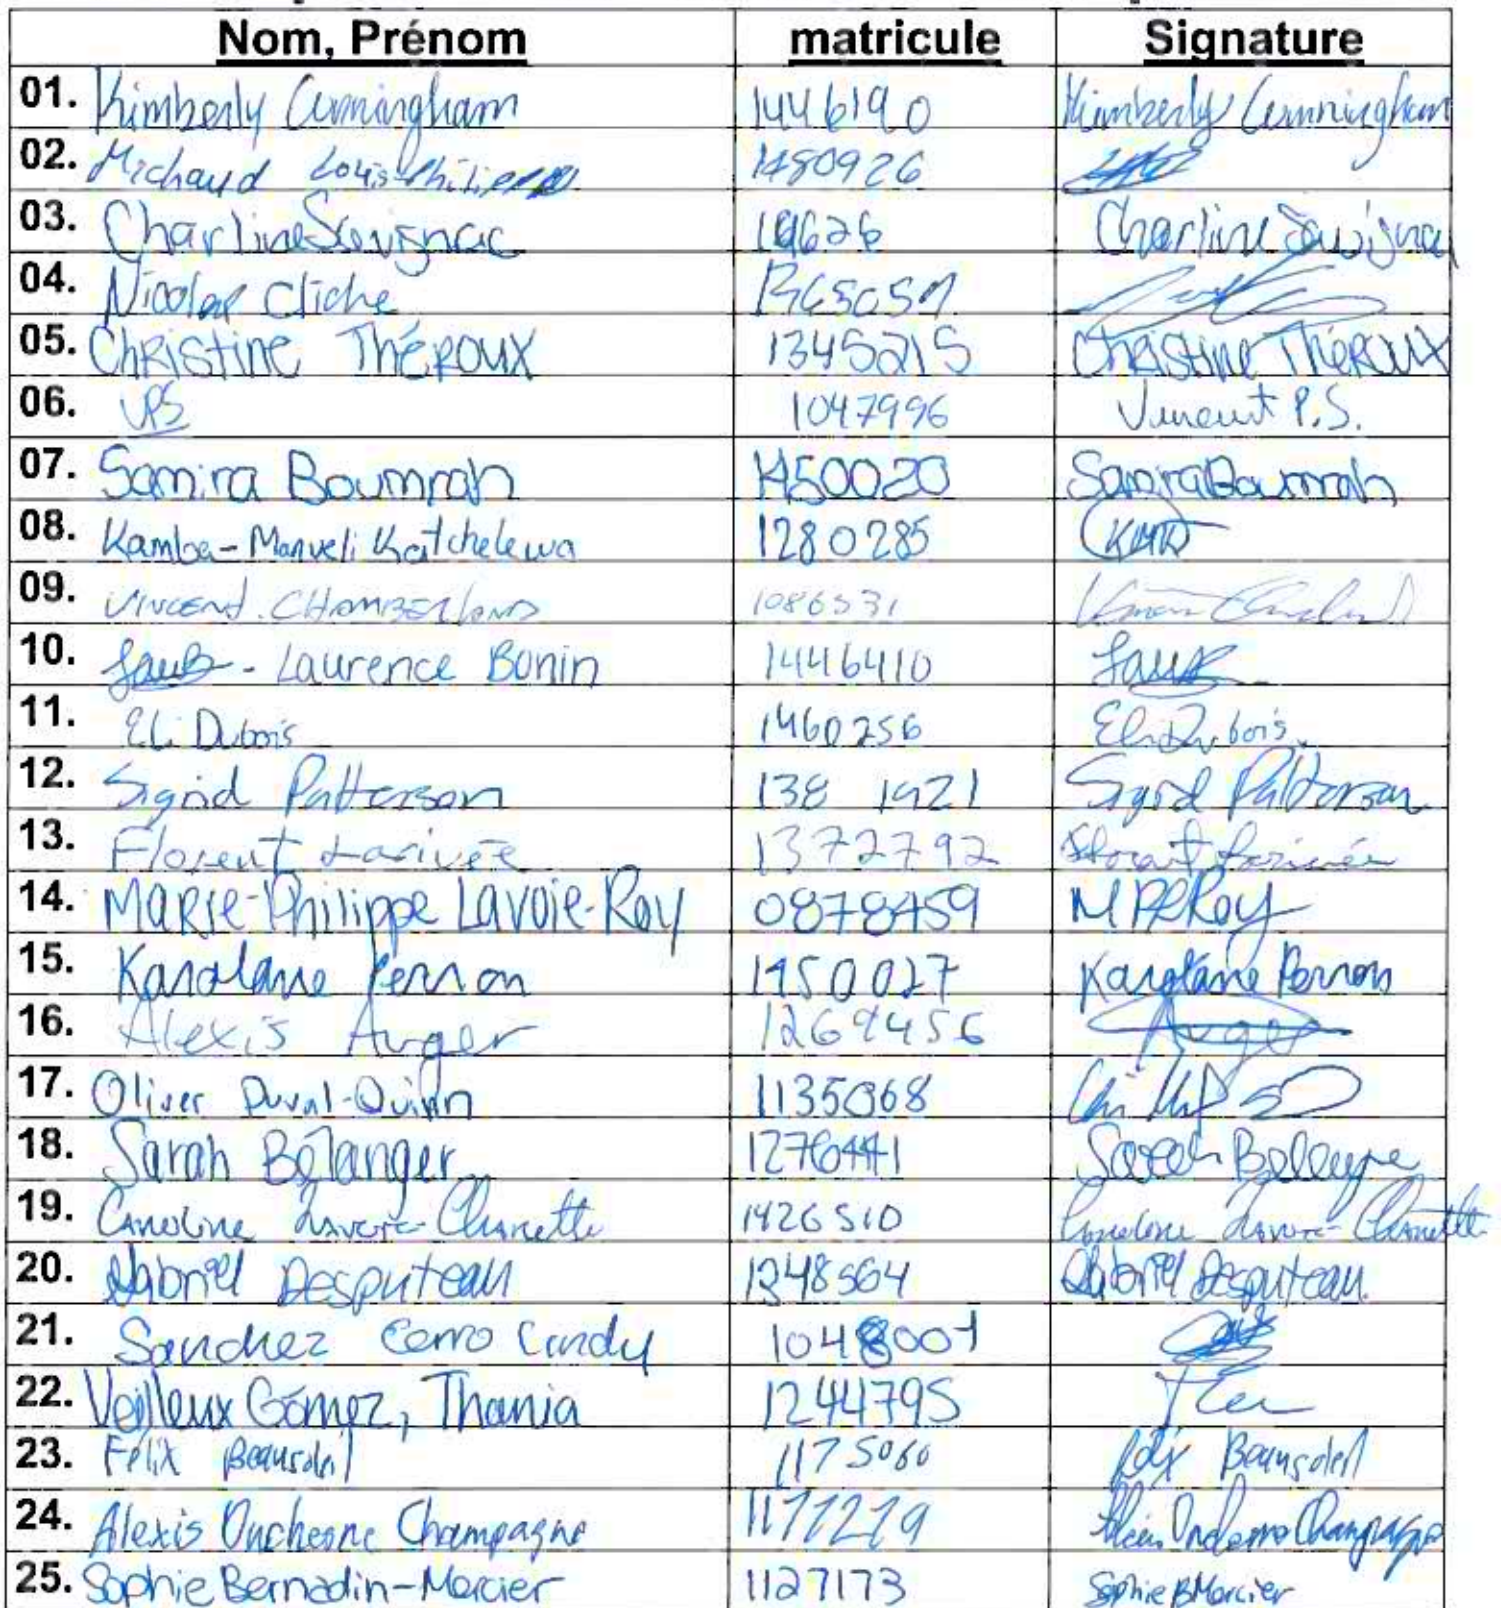 Nom, Prénom matricule Signature
01. Kimberly Cunningham 1446190 Kimberly Cunningham
02. Michaud Louis-Philippe 1480926
03. Charline Sauvignac Charline Sauvignac
04. Nicolas Cliche
05. Christine Théroux 1345215 Christine Théroux
06. VPS 1047996 Vincent P.S.
07. Samira Boumrah 1450020 Samira Boumrah
08. Kamba-Manveli Katchelewa 1280285
09. VINCENT. CHAMBERLAND 1086531
10. - Laurence Bonin 1446410
11. Eli Dubois 1460256 Eli Dubois
12. Sigrid Patterson 138 1921 Sigrid Patterson
13. Florent Larivée 1372792 Florent Larivée
14. Marie-Philippe Lavoie-Roy 0878459
15. Karolane Perron 1450027 Karolane Perron
16. Alexis Auger 1269456 Auger
17. Oliver Duval-Quinn 1135068
18. Sarah Bélanger 1276441 Sarah Belanger
19. Caroline Lavoie-Charette 1426510 Caroline Lavoie-Charette
20. Gabriel Desputeau 1248564 Gabriel Desputeau
21. Sanchez Cerro Cindy 1048001
22. Veilleux Gómez, Thania 1244795
23. Felix Beausoleil 1175060 Felix Beausoleil
24. Alexis Duchesne Champagne 1177279 Alexis Duchesne Champagne
25. Sophie Bernadin-Mercier 1127173 Sophie BMercier